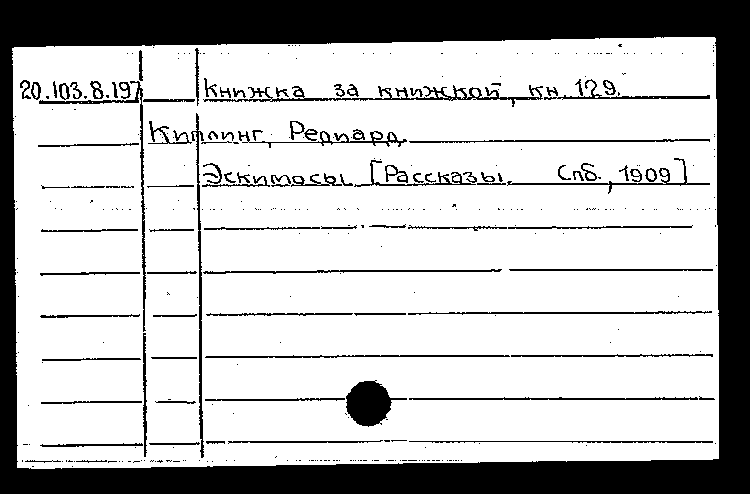 20.103.8.197 Книжка за книжкой, кн. 129.
Киплинг, Редиард.
Эскимосы. [Рассказы. Спб., 1909]